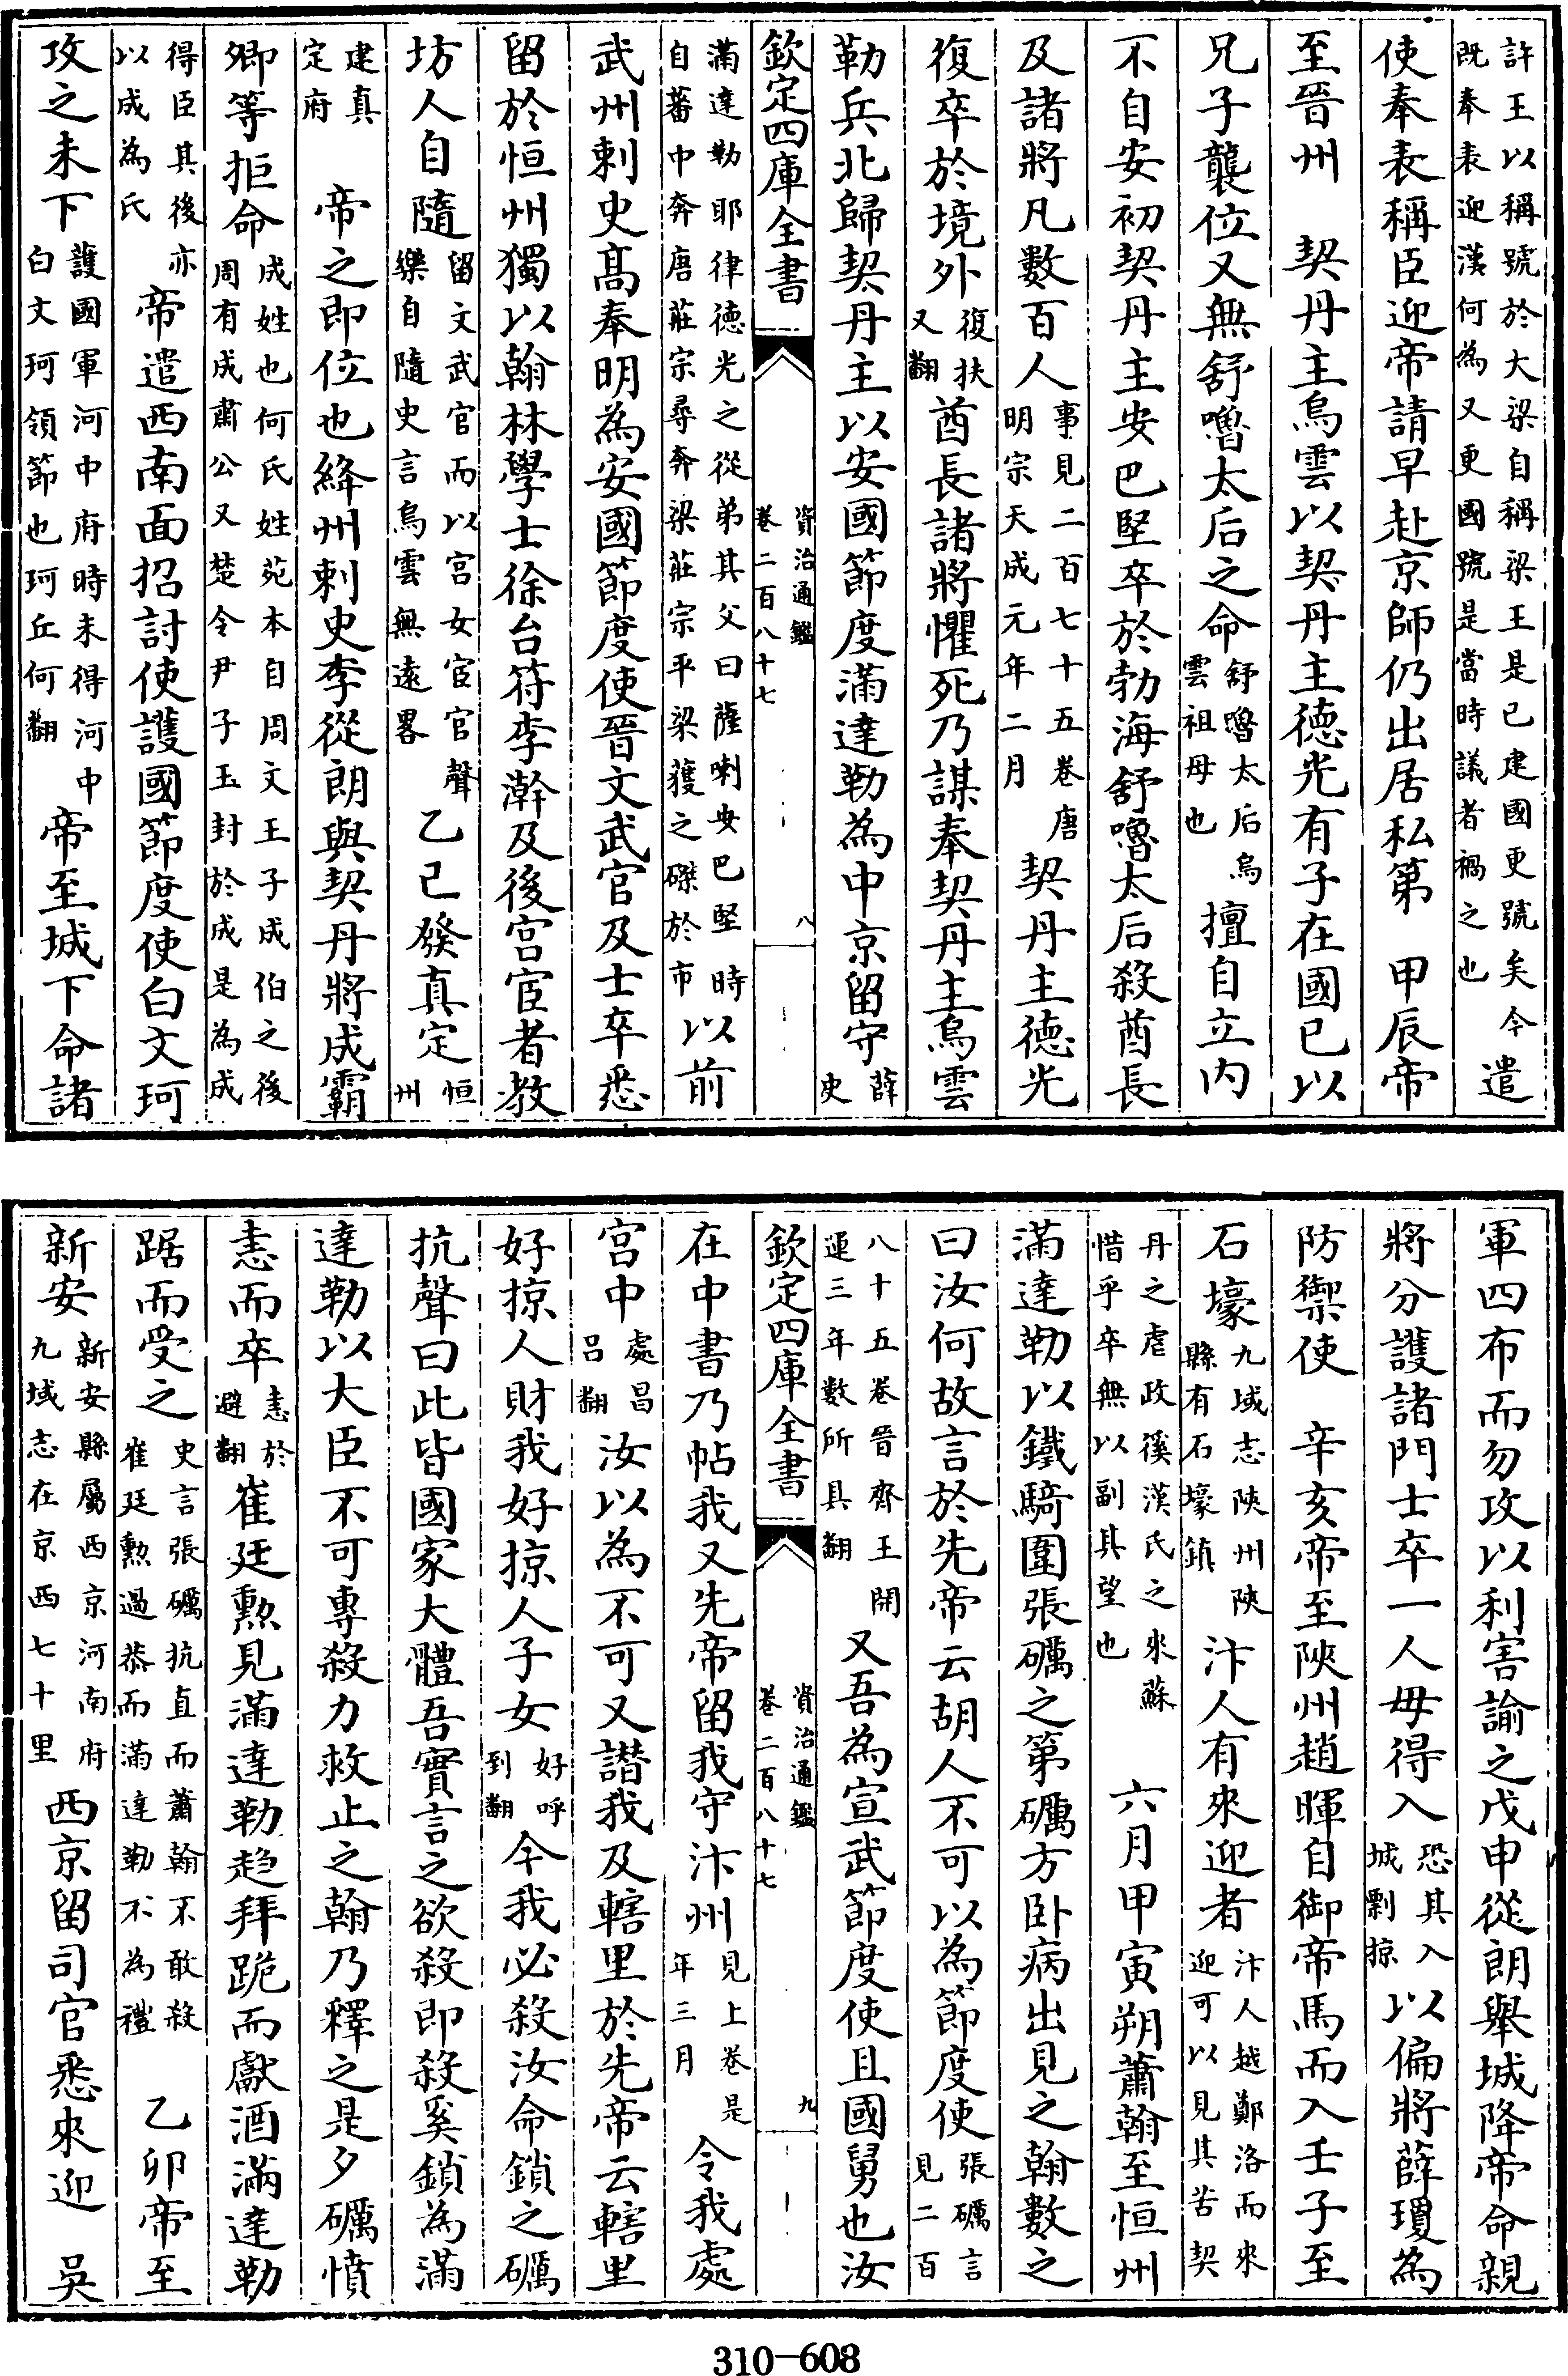 許王以稱號於大梁自稱梁王是已建國更號矣今
既奉表迎漢何為又更國號是當時議者禍之也
遣
使奉表稱臣迎帝請早赴京師仍出居私第　甲辰帝
至晉州　契丹主烏雲以契丹主德光有子在國已以
兄子襲位又無舒嚕太后之命
舒嚕太后烏
雲祖母也
擅自立內
不自安初契丹主安巴堅卒於勃海舒嚕太后殺酋長
及諸將凡數百人
事見二百七十五卷唐
明宗天成元年二月
契丹主德光
復卒於境外
復扶
又翻
酋長諸將懼死乃謀奉契丹主烏雲
勒兵北歸契丹主以安國節度滿達勒為中京留守
薛
史
欽定四庫全書
資治通鑑
卷二百八十七
八
滿達勒耶律德光之從弟其父曰薩喇安巴堅時
自蕃中奔唐莊宗尋奔梁莊宗平梁獲之磔於市
以前
武州刺史高奉明為安國節度使晉文武官及士卒悉
留於恒州獨以翰林學士徐台符李澣及後宮宦者教
坊人自隨
留文武官而以宮女宦官聲
樂自隨史言烏雲無遠畧
乙已發真定
恒
州
建真
定府
帝之即位也絳州刺史李從朗與契丹將成霸
卿等拒命
成姓也何氏姓苑本自周文王子成伯之後
周有成肅公又楚令尹子玉封於成是為成
得臣其後亦
以成為氏
帝遣西南面招討使護國節度使白文珂
攻之未下
護國軍河中府時未得河中
白文珂領節也珂丘何翻
帝至城下命諸
軍四布而勿攻以利害諭之戊申從朗舉城降帝命親
將分護諸門士卒一人毋得入
恐其入
城剽掠
以偏將薛瓊為
防禦使　辛亥帝至陝州趙暉自御帝馬而入壬子至
石壕
九域志陝州陝
縣有石壕鎮
汴人有來迎者
汴人越鄭洛而來
迎可以見其苦契
丹之虐政徯漢氏之來蘇
惜乎卒無以副其望也
六月甲寅朔蕭翰至恒州
滿達勒以鐵騎圍張礪之第礪方卧病出見之翰數之
曰汝何故言於先帝云胡人不可以為節度使
張礪言
見二百
八十五卷晉齊王開
運三年數所具翻
又吾為宣武節度使且國舅也汝
欽定四庫全書
資治通鑑
卷二百八十七
九
在中書乃帖我又先帝留我守汴州
見上卷是
年三月
令我處
宮中
處昌
呂翻
汝以為不可又譖我及轄里於先帝云轄里
好掠人財我好掠人子女
好呼
到翻
今我必殺汝命鎖之礪
抗聲曰此皆國家大體吾實言之欲殺即殺奚鎖為滿
達勒以大臣不可專殺力救止之翰乃釋之是夕礪憤
恚而卒
恚於
避翻
崔廷勲見滿達勒趋拜跪而獻酒滿達勒
踞而受之
史言張礪抗直而蕭翰不敢殺
崔廷勲過恭而滿達勒不為禮
乙卯帝至
新安
新安縣屬西京河南府
九域志在京西七十里
西京留司官悉來迎　吳
310-608